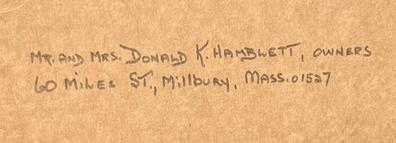 MR. AND MRS. DONALD K. HAMBLETT, OWNERS
60 MILES ST., Millbury, MASS. 01527